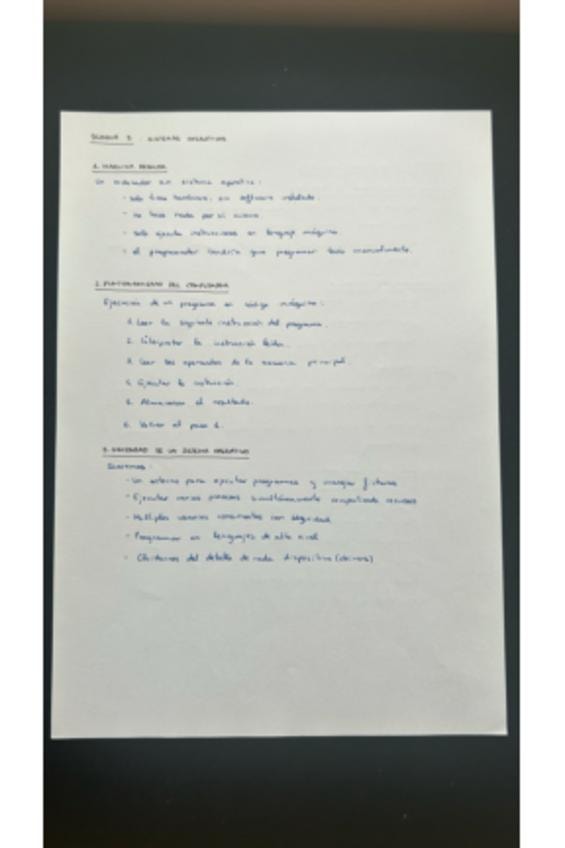 BLOQUE 3: SISTEMAS OPERATIVOS
1. MÁQUINA DESNUDA
Un ordenador sin sistema operativo:
- Solo tiene hardware, sin software instalado.
- No hace nada por sí mismo.
- Solo ejecuta instrucciones en lenguaje máquina.
- El programador tendría que programar todo manualmente.
2. FUNCIONAMIENTO DEL COMPUTADOR
Ejecución de un programa en código máquina:
1. Leer la siguiente instrucción del programa.
2. Interpretar la instrucción leída.
3. Leer los operandos de la memoria principal.
4. Ejecutar la instrucción.
5. Almacenar el resultado.
6. Volver al paso 1.
3. NECESIDAD DE UN SISTEMA OPERATIVO
Queremos:
- Un entorno para ejecutar programas y manejar ficheros
- Ejecutar varios procesos simultáneamente compartiendo recursos
- Múltiples usuarios concurrentes con seguridad
- Programar en lenguajes de alto nivel
- Olvidarnos del detalle de cada dispositivo (drivers)